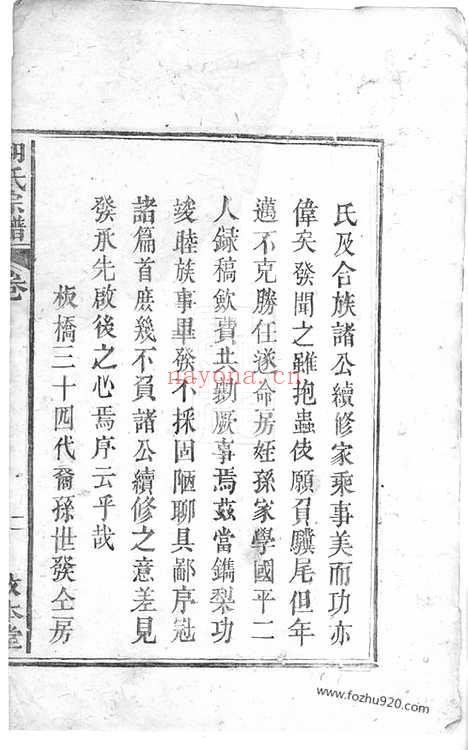 氏及合族諸公續修家乘事美而功亦
偉矣發聞之雖抱蟲伎願負驥尾但年
邁不克勝任遂命房姪孫家學國平二
人録稿飲費共勷厥事焉茲當鐫梨功
竣睦族事畢發不揣固陋聊具鄙序冠
諸篇首庶幾不負諸公續修之意差見
發承先啟後之心焉序云乎哉
板橋三十四代裔孫世發仝房
胡氏宗譜
卷
本堂
nayona.cn
www.fozhu920.com